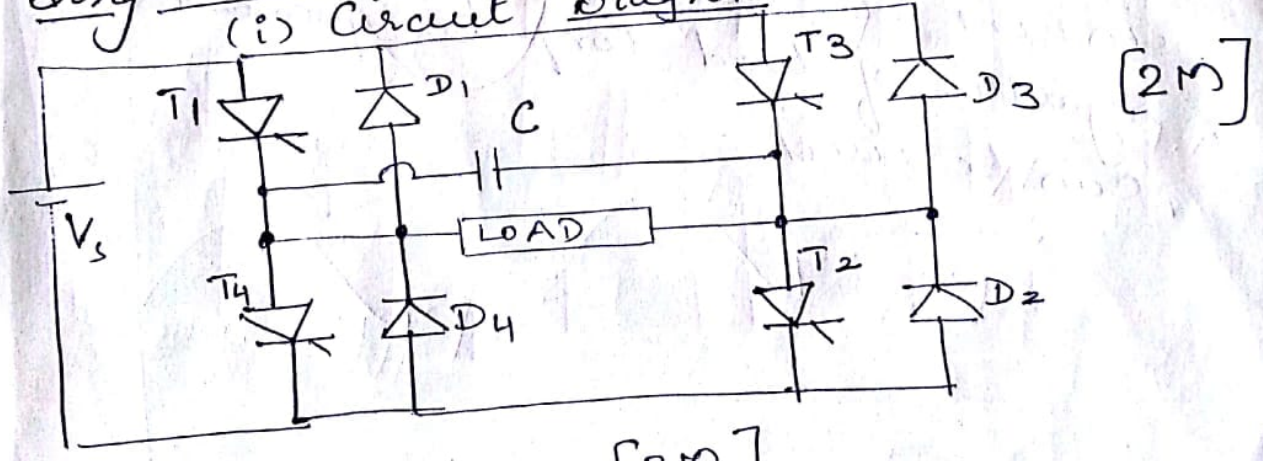 (i) Circuit Diagram
T1
D1
C
T3
D3
[2M]
Vs
LOAD
T4
D4
T2
D2